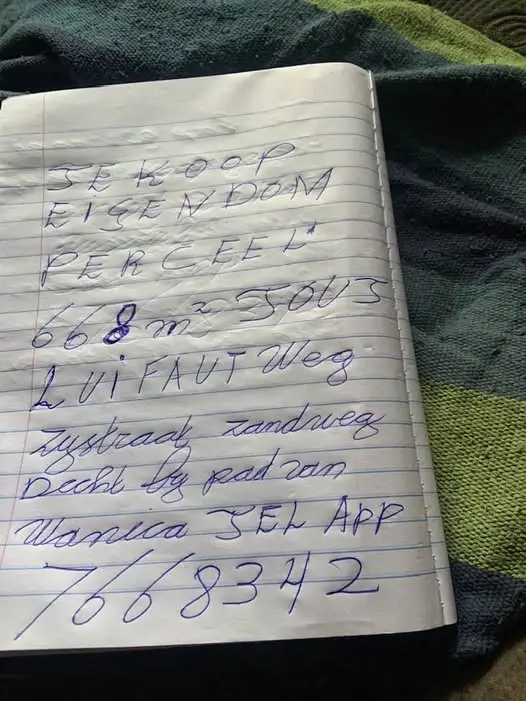 TE KOOP
EIGENDOM
PERCEEL
668 m² TOUT
LUI FAUT Weg
zystraat zandweg
Decht by pad van
Wanica TEL APP
7668342